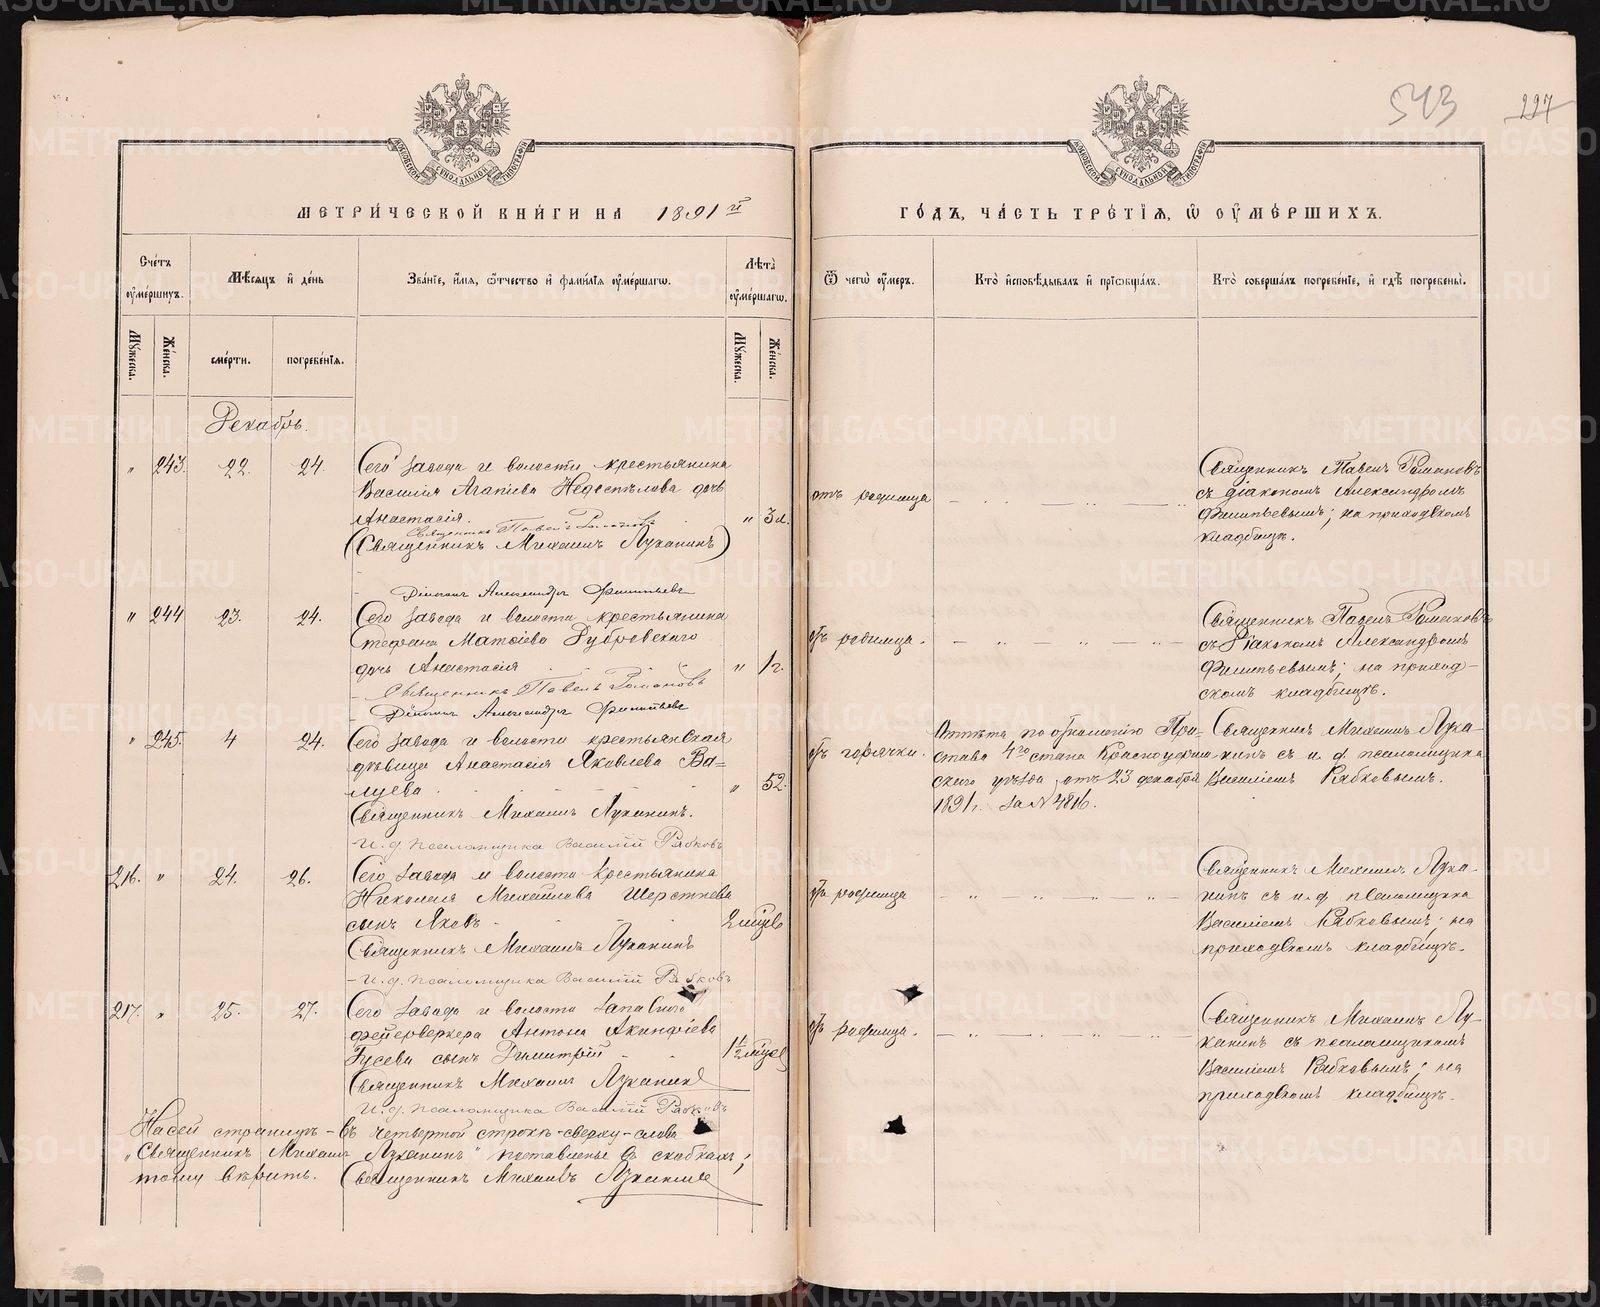 543
227
МОСКОВСКОЙ СУНОДАЛЬНОЙ ТИПОГРАФІИ
МОСКОВСКОЙ СУНОДАЛЬНОЙ ТИПОГРАФІИ
МЕТРИ́ЧЕСКОЙ КНИ́ГИ НА 1891 й
ГО́ДЪ, ЧА́СТЬ ТРЕ́ТІѦ, Ѽ ОУМЕ́РШИХЪ.
Сче́тъ оуме́ршихъ.
Мѣ́сяцъ и́ де́нь
Зва́ніе, и́мя, ѻ́тчество и́ фами́лія оуме́ршагѡ.
Лѣ́та оуме́ршагѡ.
Ѿ чегѡ̀ оу́меръ.
Кто̀ и́сповѣ́дывалъ и́ пріѡбща́лъ.
Кто̀ соверша́лъ погребе́ніе, и́ гдѣ̀ погребены̀.
Му́жеска.
Же́нска.
сме́рти.
погребе́нія.
Му́жеска.
Же́нска.
Декабрь.
" 243. 22. 24.
Сего завода и волости крестьянина
Василія Агапіева Недоспѣлова дочь
Анастасія. " 3 л.
Священникъ Павелъ Романовъ
(Священникъ Михаилъ Луканинъ)
Діаконъ Александръ Филитьевъ
отъ родимца
Священникъ Павелъ Романовъ
съ діакономъ Александромъ
Филитьевымъ; на приходскомъ
кладбищѣ.
" 244 23. 24.
Сего завода и волости крестьянина
Стефана Матѳіева Дубровскаго
дочь Анастасія " 1 г.
Священникъ Павелъ Романовъ
Діаконъ Александръ Филитьевъ
отъ родимца.
Священникъ Павелъ Романовъ
съ діакономъ Александромъ
Филитьевымъ; на приход-
скомъ кладбищѣ.
" 245. 4 24.
Сего завода и волости крестьянская
дѣвица Анастасія Яковлева Ва-
луева " 52.
Священникъ Михаилъ Луканинъ.
И. д. псаломщика Василій Рябковъ
отъ горячки.
Отпѣта по отношенію При-
става 4го стана Красноуфим
скаго уѣзда отъ 23 декабря
1891 г. за № 4816.
Священникъ Михаилъ Лука-
нинъ съ и. д. псаломщика
Василіемъ Рябковымъ.
216. " 24. 26.
Сего завода и волости крестьянина
Николая Михайлова Шерстнева
сынъ Яковъ 2 мѣсяц
Священникъ Михаилъ Луканинъ
И. д. псаломщика Василій Рябковъ
отъ родимца
Священникъ Михаилъ Лука-
нинъ съ и. д псаломщика
Василіемъ Рябковымъ; на
приходскомъ кладбищѣ.
217. " 25. 27.
Сего завода и волости запаснаго
фейерверкера Антона Акинфіева
Гусева сынъ Димитрій 1 1/2 мѣсяц
Священникъ Михаилъ Луканинъ
И. д. псаломщика Василій Рябковъ
отъ родимца.
Священникъ Михаилъ Лу-
канинъ съ псаломщикомъ
Василіемъ Рябковымъ; на
приходскомъ кладбищѣ.
На сей страницѣ - въ четвертой строкѣ - сверху - слова
„Священникъ Михаилъ Луканинъ" поставлены въ скобкахъ;
тому вѣрить. Священникъ Михаилъ Луканинъ
METRIKI.GASO-URAL.RU